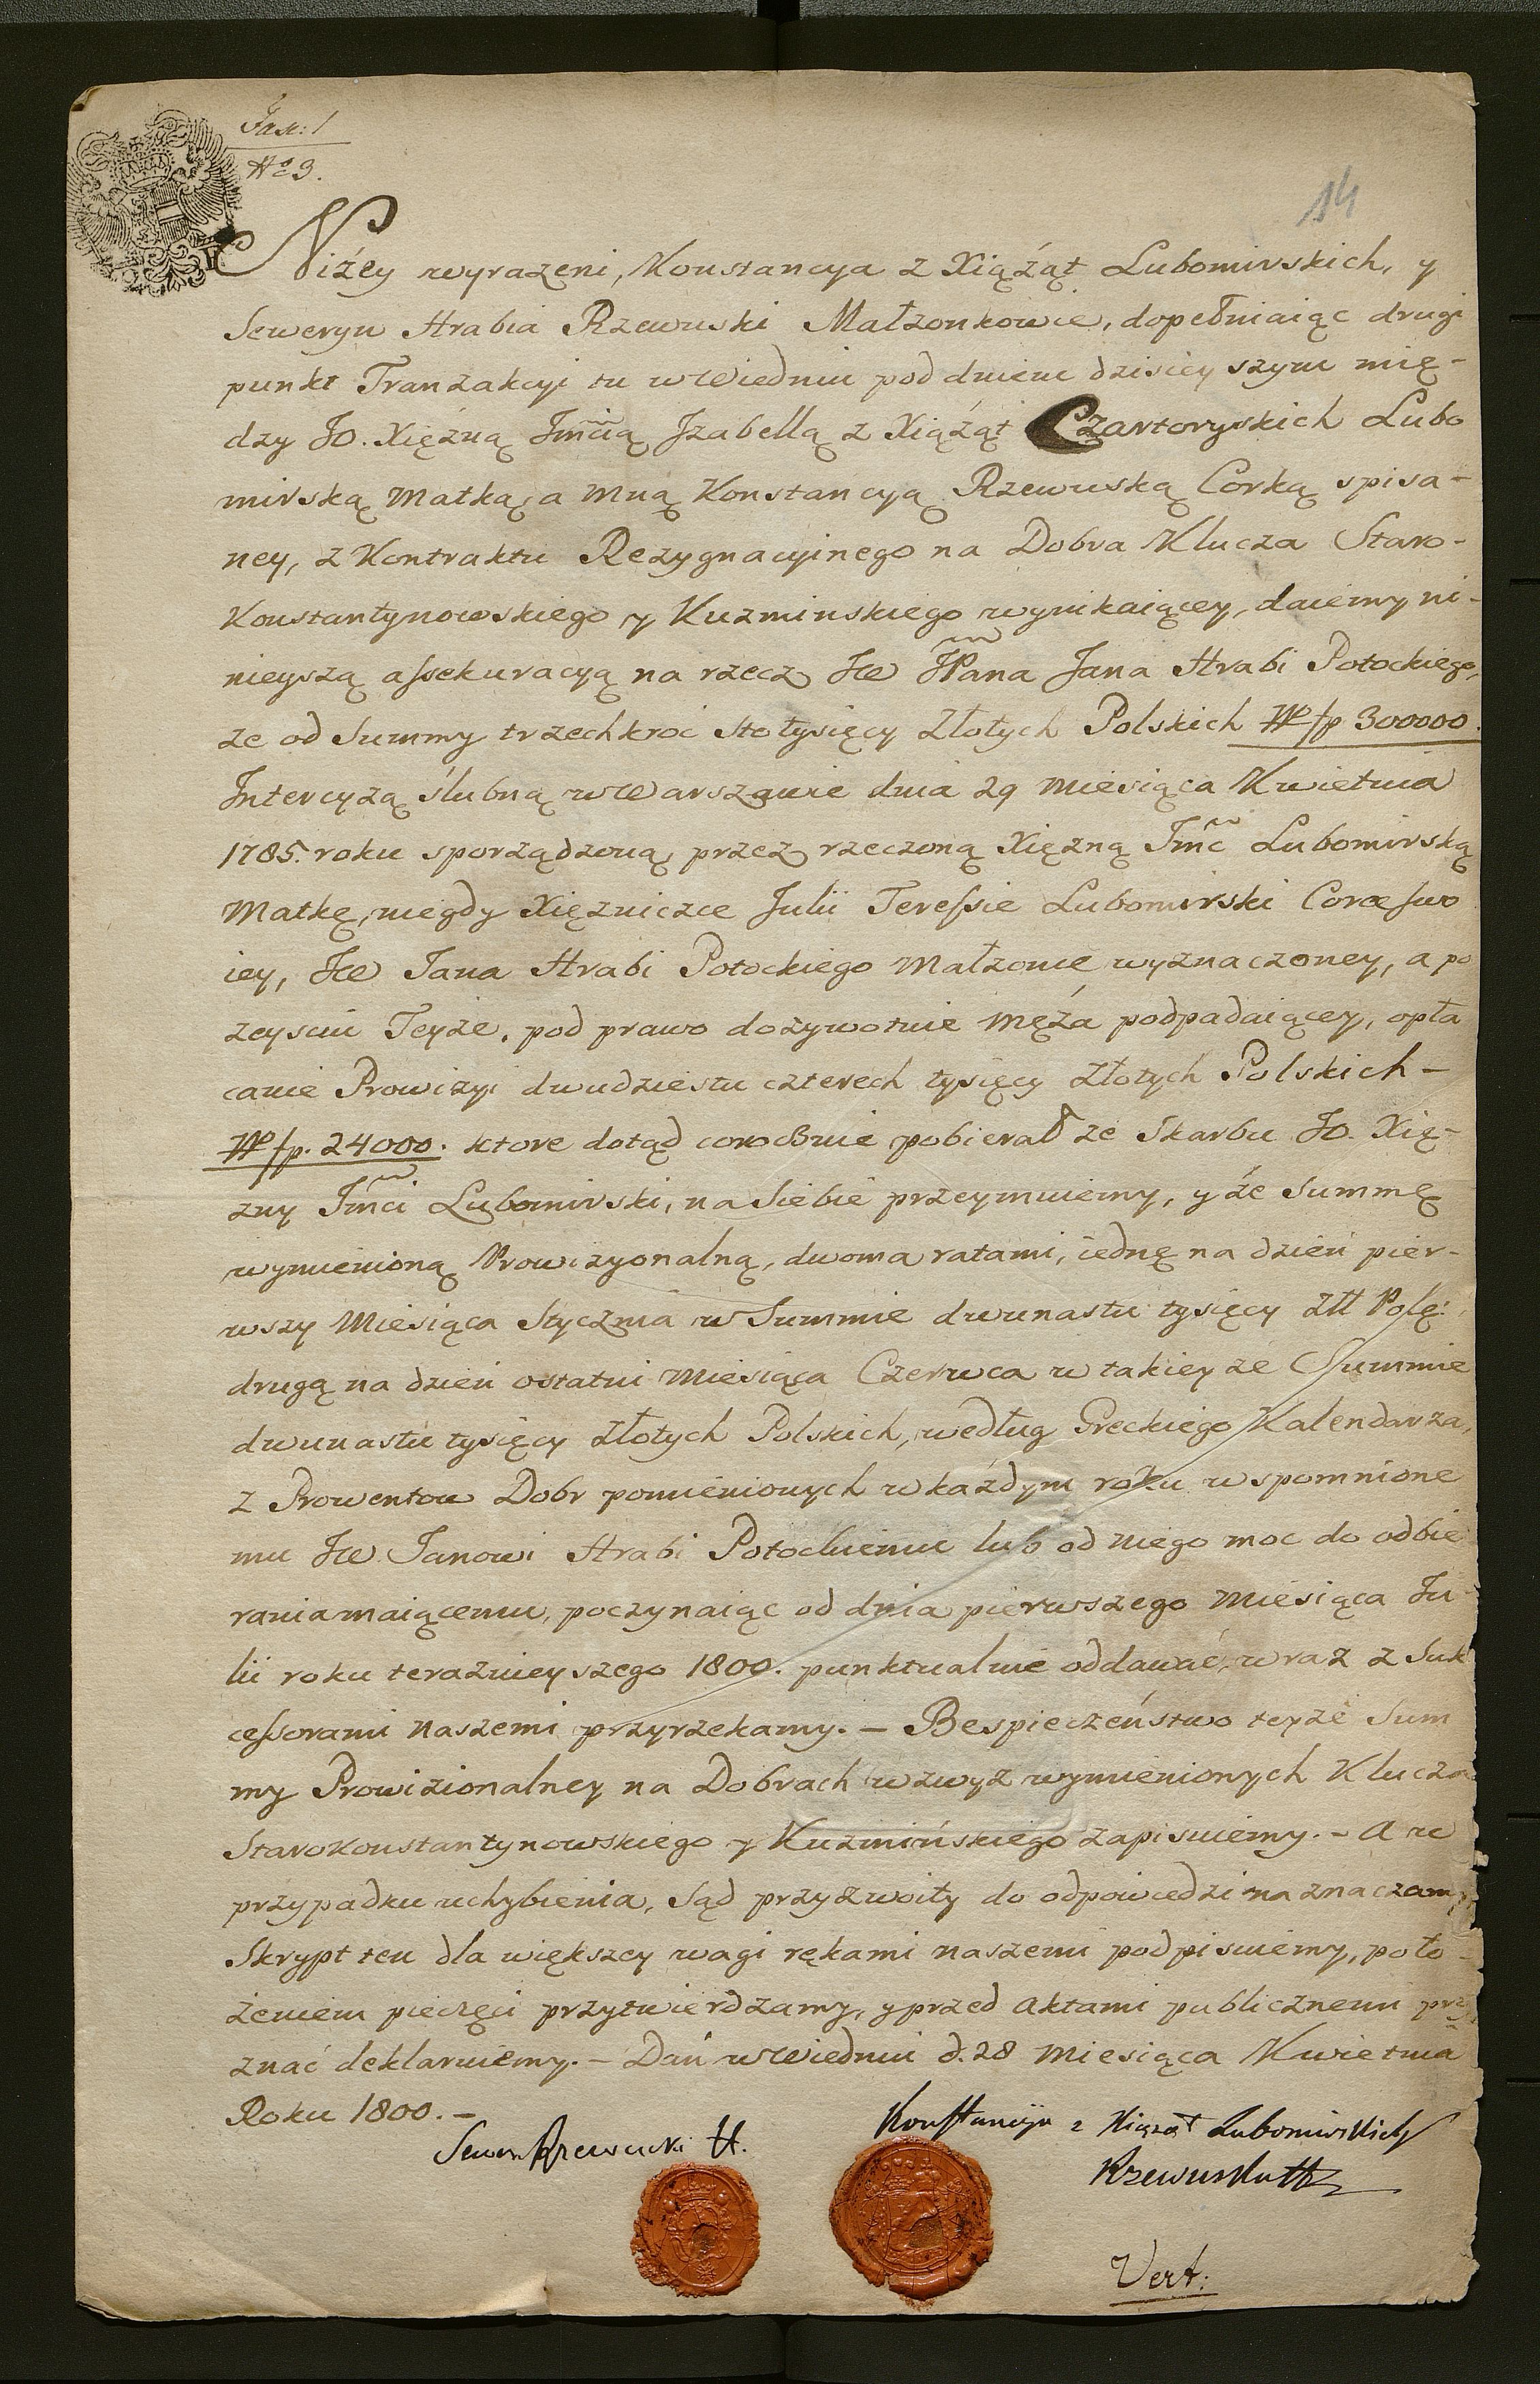 Fasc: 1
No 3.
14
Niźey wyrazeni, Konstancya z Xiąźąt Lubomirskich, y
Seweryn Hrabia Rzewuski Małzonkowie, dopełniaiąc drugi
punkt Tranzakcyi tu w Wiedniu pod dniem dzisieyszym mię-
dzy JO. Xięźną Jmcią Jzabellą z Xiąźąt Czartoryskich Lubo
mirską Matką, a Mną Konstancyą Rzewuską Corką spisa-
ney, z Kontraktu Rezygnacyinego na Dobra Klucza Staro-
Konstantynowskiego y Kuzminskiego wynikaiącey, daiemy ni-
nieyszą assekuracyą na rzecz JW JPana Jana Hrabi Potockiego,
ze od Summy trzechkroć Stotysięcy Złotych Polskich fp 300000.
Intercyzą ślubną w Warszawie dnia 29 Miesiąca Kwietnia
1785. roku sporządzoną, przez rzeczoną Xięzną Jmć Lubomirską
Matkę, niegdy Xięzniczce Julii Teressie Lubomirski Corce swo
iey, JW Jana Hrabi Potockiego Małzonie wyznaczoney, a po
zeysciu Teyze, pod prawo dozywotnie Męźa podpadaiącey, opła
canie Prowizyi dwudziestu czterech tysięcy Złotych Polskich –
fp. 24000. ktore dotąd corocznie pobierał ze Skarbu JO. Xię-
zny Jmci Lubomirski, na Siebie przeymuiemy, y źe Summę
wymienioną Prowizyonalną, dwoma ratami, iednę na dzień pier-
wszy Miesiąca Stycznia w Summie dwunastu tysięcy złł Pols:
drugą na dzień ostatni Miesiąca Czerwca w takiey ze Summie
dwunastu tysięcy Złotych Polskich, według Greckiego Kalendarza,
z Prowentow Dobr pomienionych w kaźdym roku wspomnione
mu JW. Janowi Hrabi Potockiemu lub od niego moc do odbie
rania maiącemu, poczynaiąc od dnia pierwszego Miesiąca Ju
lii roku teraznieyszego 1800. punktualnie oddawać, wraz z Suk
cessorami naszemi przyrzekamy. – Bespieczeństwo teyze Sum
my Prowizionalney na Dobrach wzwyz wymienionych Klucza
Starokonstantynowskiego y Kuzmińskiego zapisuiemy. – A w
przypadku uchybienia, Sąd przyzwoity do odpowiedzi naznaczamy
Skrypt ten dla większey wagi rękami naszemi podpisuiemy, poło-
żeniem pieczęci przytwierdzamy, y przed Aktami publicznemi przy
znać deklaruiemy. – Dań w Wiedniu d. 28 Miesiąca Kwietnia
Roku 1800. –
Sewer Rzewuski H.
Konstancyja z Xiąząt Lubomirskich
Rzewuska H
Vert: